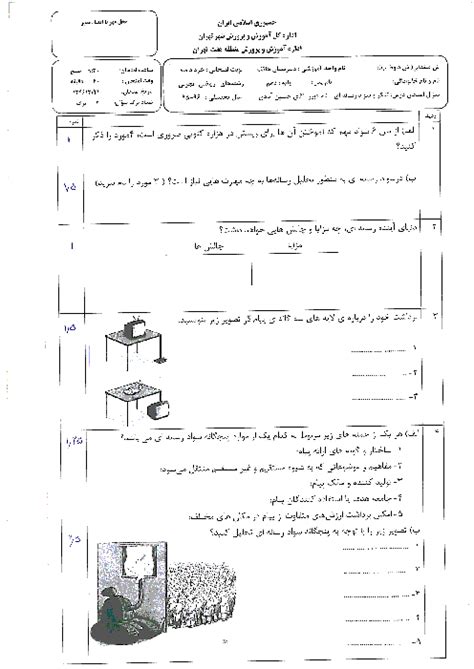 جمهوری اسلامی ایران
اداره کل آموزش و پرورش شهر تهران
اداره آموزش و پرورش منطقه هفت تهران
محل مهر یا امضاء مدیر
نام واحد آموزشی: دبیرستان
نوبت امتحانی: خرداد
ساعت امتحان:
نام و نام خانوادگی:
نام پدر:
پایه: دهم
رشته‌های: ریاضی تجربی
وقت امتحان:
سال تحصیلی:
تعداد برگ سؤال:
ردیف
۱
الف) از بین ۶ سواد مهم که آموختن آن ها برای زیستن در هزاره کنونی ضروری است، ۴مورد را ذکر کنید؟
۱
ب) در سواد رسانه ای به منظور تحلیل رسانه‌ها به چه مهارت هایی نیاز است؟ ( ۳ مورد را نام ببرید)
۷۵
۲
دنیای آینده رسانه ای، چه مزایا و چالش هایی خواهد داشت؟
مزایا
چالش ها
۱
۳
برداشت خود را درباره ی لایه های سه گانه ی پیام در تصویر زیر بنویسید.
۱/۵
۱- ....................
۲- ....................
۳- ....................
۴
الف) هر یک از جمله های زیر مربوط به کدام یک از موارد پنجگانه سواد رسانه ای می باشد؟
۱/۲۵
۱- ساختار و گونه های ارائه پیام:
۲- مفاهیم و موضوعاتی که به شیوه مستقیم و غیر مستقیم منتقل می‌شود:
۳- تولید کننده و مالک پیام:
۴- جامعه هدف یا استفاده کنندگان پیام:
۵- امکان برداشت ارزش‌های متفاوت از پیام در مکان های مختلف:
ب) تصویر زیر را با توجه به پنجگانه سواد رسانه ای تحلیل کنید؟
۱- ....................
۲- ....................
۳- ....................
۴- ....................
۵- ....................